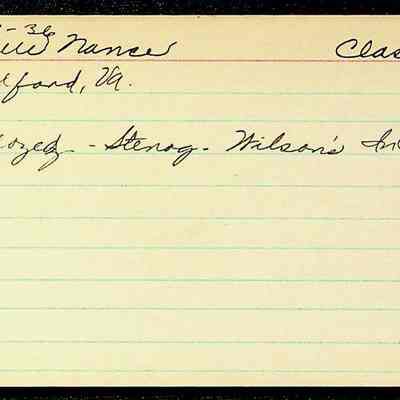 -36
Nance Clas
ford, Va.
oyed - Stenog - Wilson's In